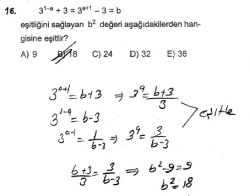 16. 3^(1-a) + 3 = 3^(a+1) - 3 = b
eşitliğini sağlayan b² değeri aşağıdakilerden han-
gisine eşittir?
A) 9 B) 18 C) 24 D) 32 E) 36
3^(a+1) = b+3 ⇒ 3^a = (b+3)/3
3^(1-a) = b-3
3^(a-1) = 1/(b-3) ⇒ 3^a = 3/(b-3)
eşitle
(b+3)/3 = 3/(b-3) ⇒ b²-9=9
b²=18